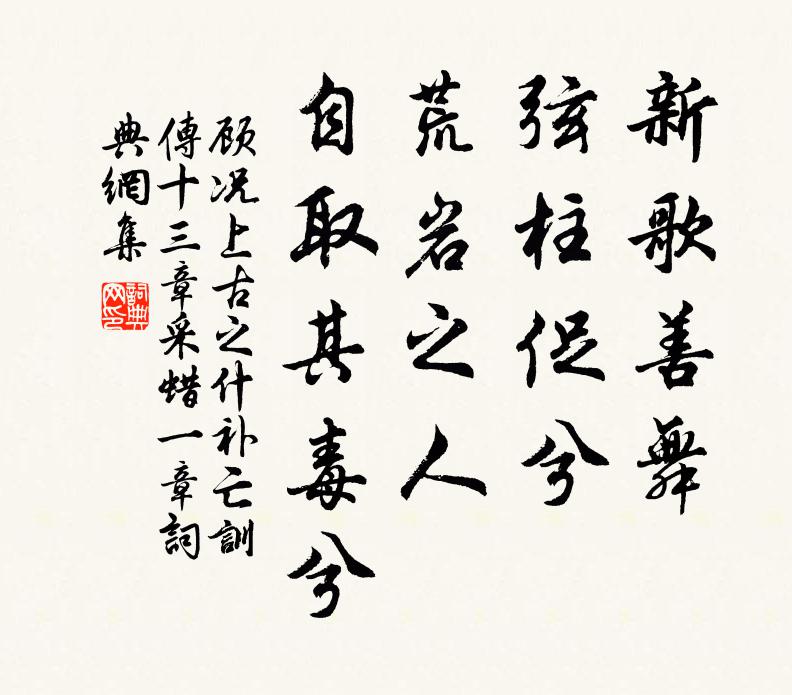 新歌善舞
弦柱促兮
荒岩之人
自取其毒兮
顾况上古之什补亡訓
傳十三章采蜡一章詞
典網集
詞典
网印